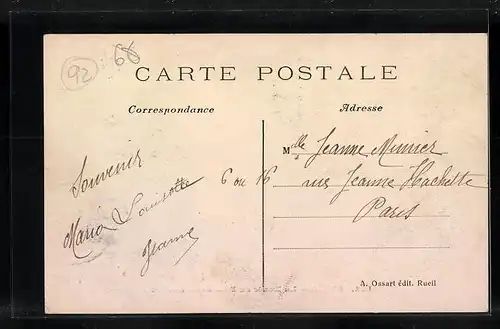 92
68
CARTE POSTALE
Correspondance
Adresse
Souvenir
Maria Louisette
Jeanne
Mlle Jeanne Munier
6 ou 16 rue Jeanne Hachette
Paris
A. Ossart édit. Rueil